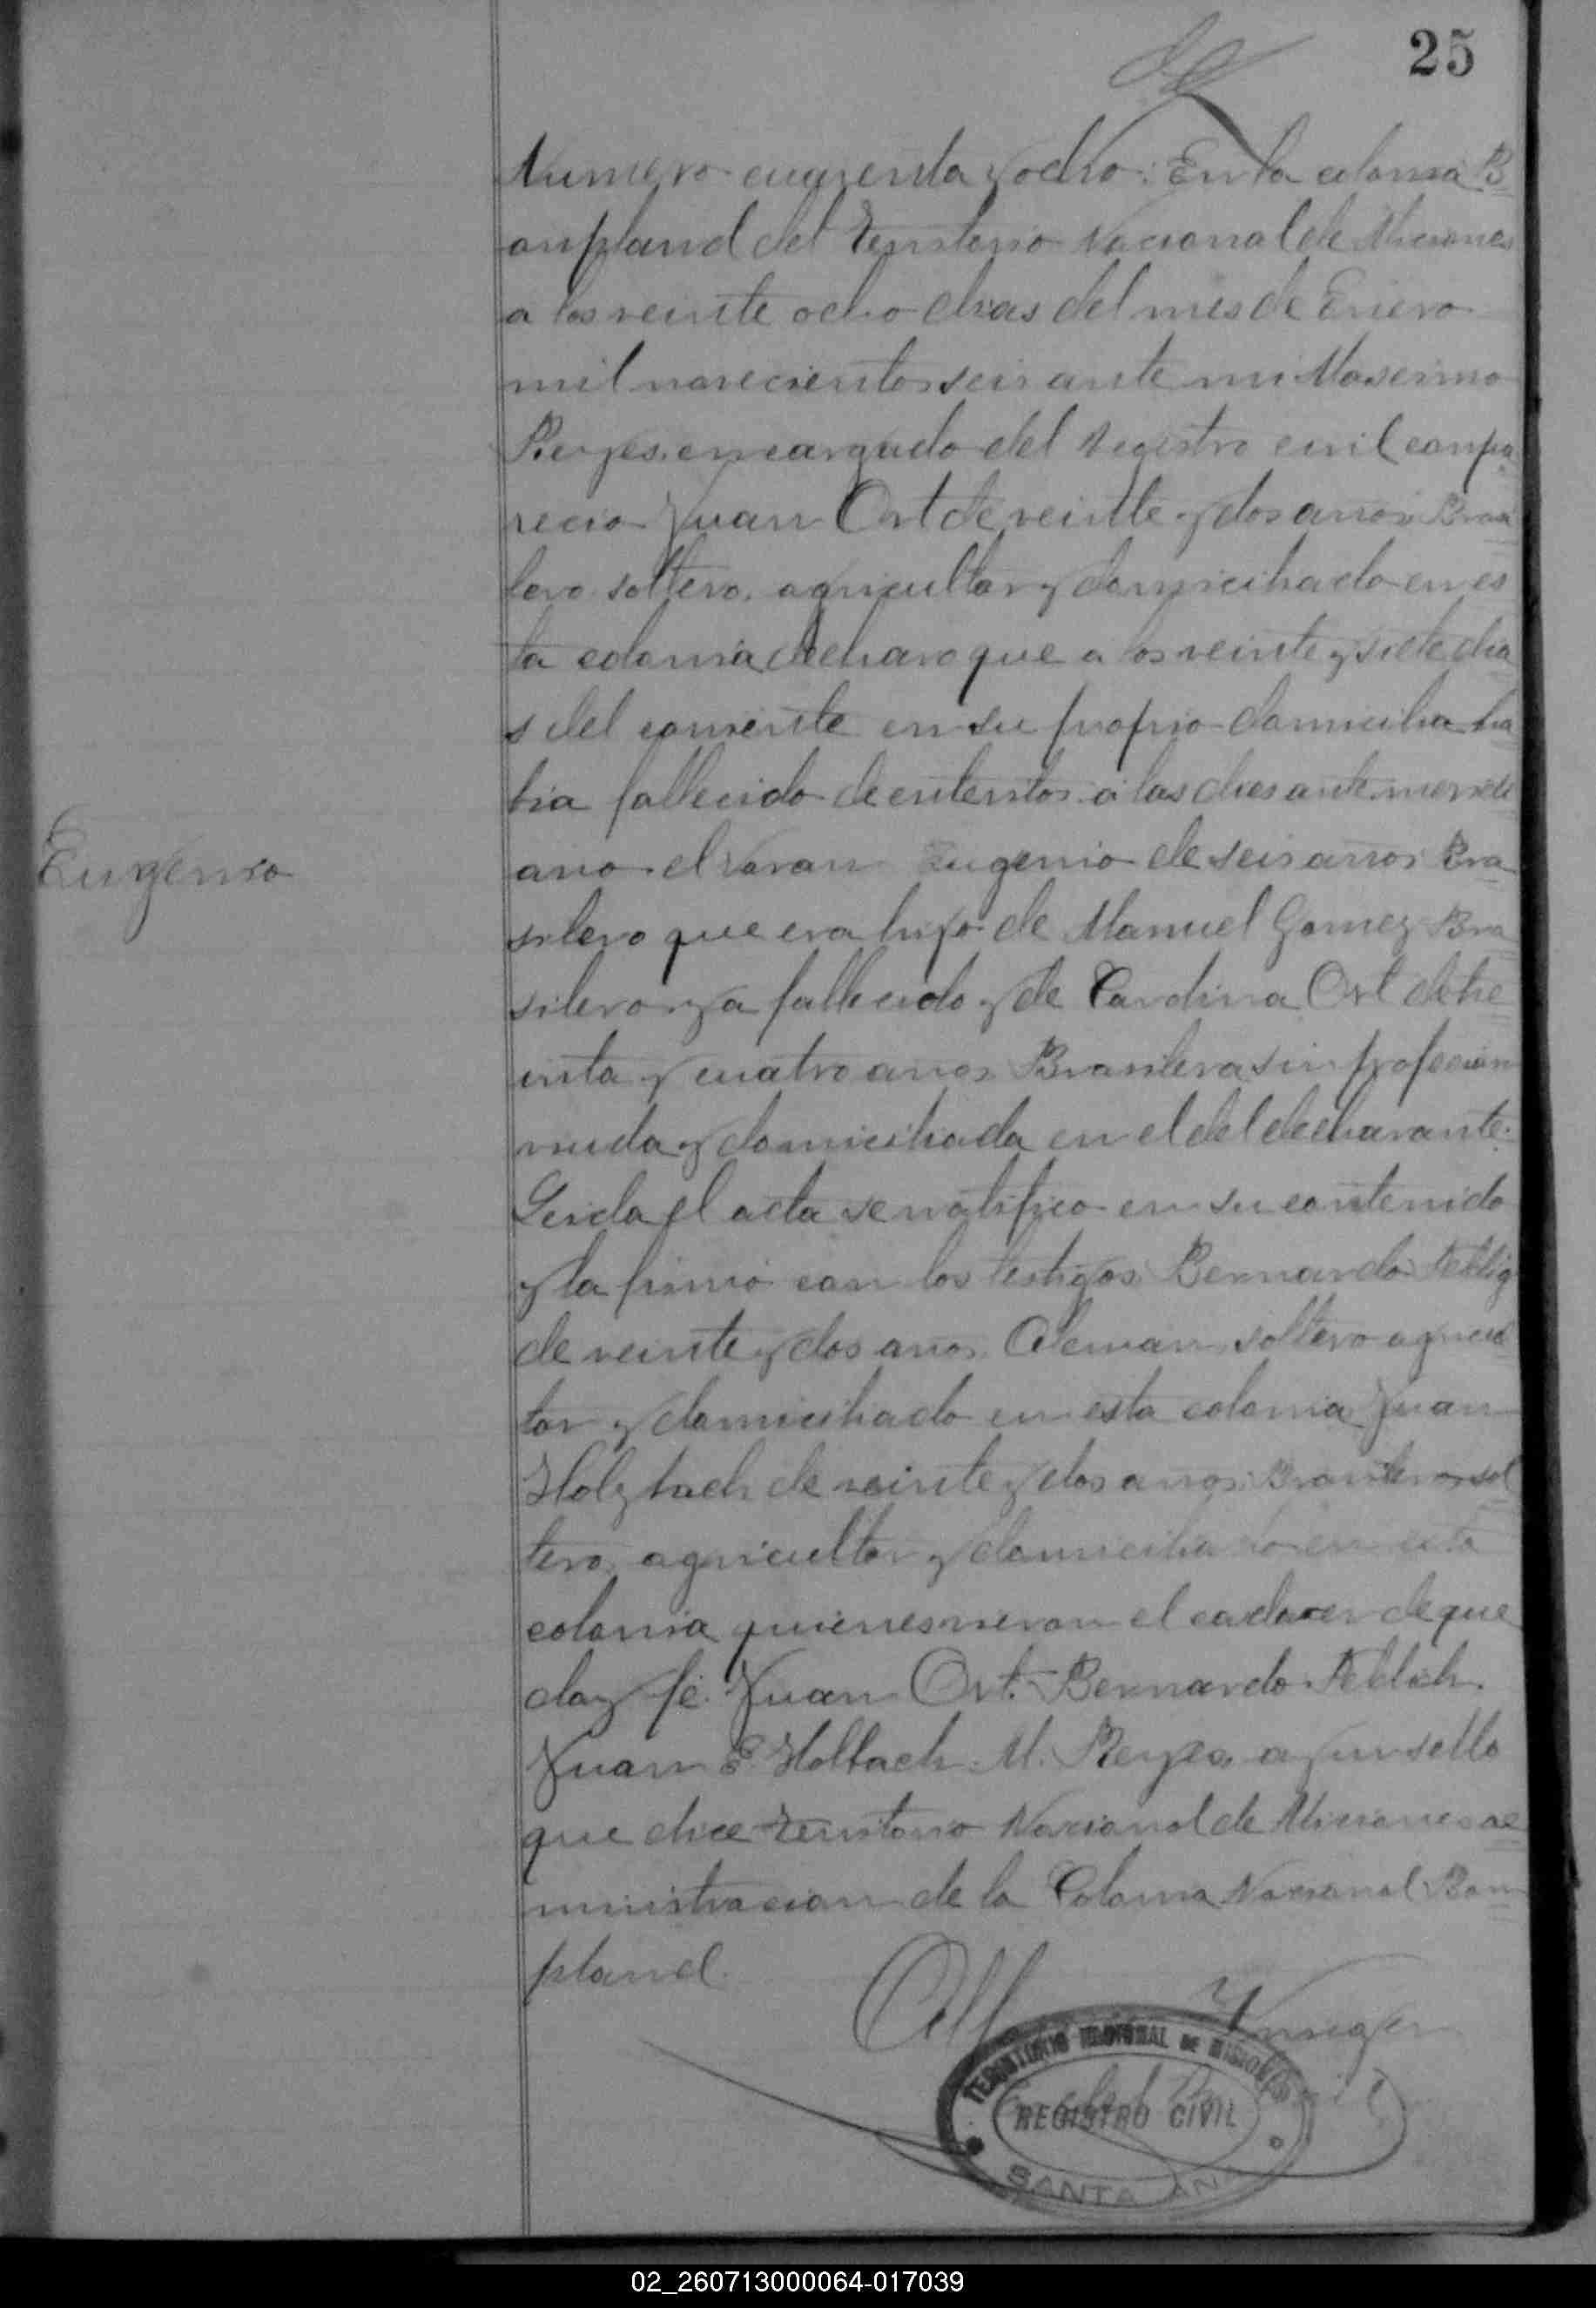 25
Numero cuarenta y ocho. En la colonia B
onpland del Territorio Nacional de Miciones
a los veinte ocho dias del mes de Enero
mil novecientos seis ante mi Maximo
Reyes encargado del Registro civil conpa
recio Juan Ort de veinte y dos años Brasi
lero soltero, agricultor y domiciliado en es
ta colonia declaro que a los veinte y siete dia
s del corriente en su propio domicilio ha
bia fallecido de enteritos a las dies ante meredi
ano el varon Eugenio de seis años Bra
Eugenio
silero que era hijo de Manuel Gomez Bra
silero ya fallecido y de Carolina Ort de tre
inta y cuatro años Brasilera sin profecion
viuda y domiciliada en el del declarante.
Leida el acta se ratifico en su contenido
y la firmó con los testigos Bernardo
de veinte y dos años Aleman soltero agricul
tor y domiciliado en esta colonia Juan
Holzbach de veinte y dos años Brasilero sol
tero, agricultor y domiciliado en esta
colonia quienes vieron el cadaver de que
doy fe. Juan Ort. Bernardo
Juan E. Holbach. M. Reyes. ay un sello
que dice Territorio Nacional de Miciones ad
ministracion de la Colonia Nacional Bon
pland.
TERRITORIO NACIONAL DE MISIONES
REGISTRO CIVIL
SANTA ANA
02_260713000064-017039